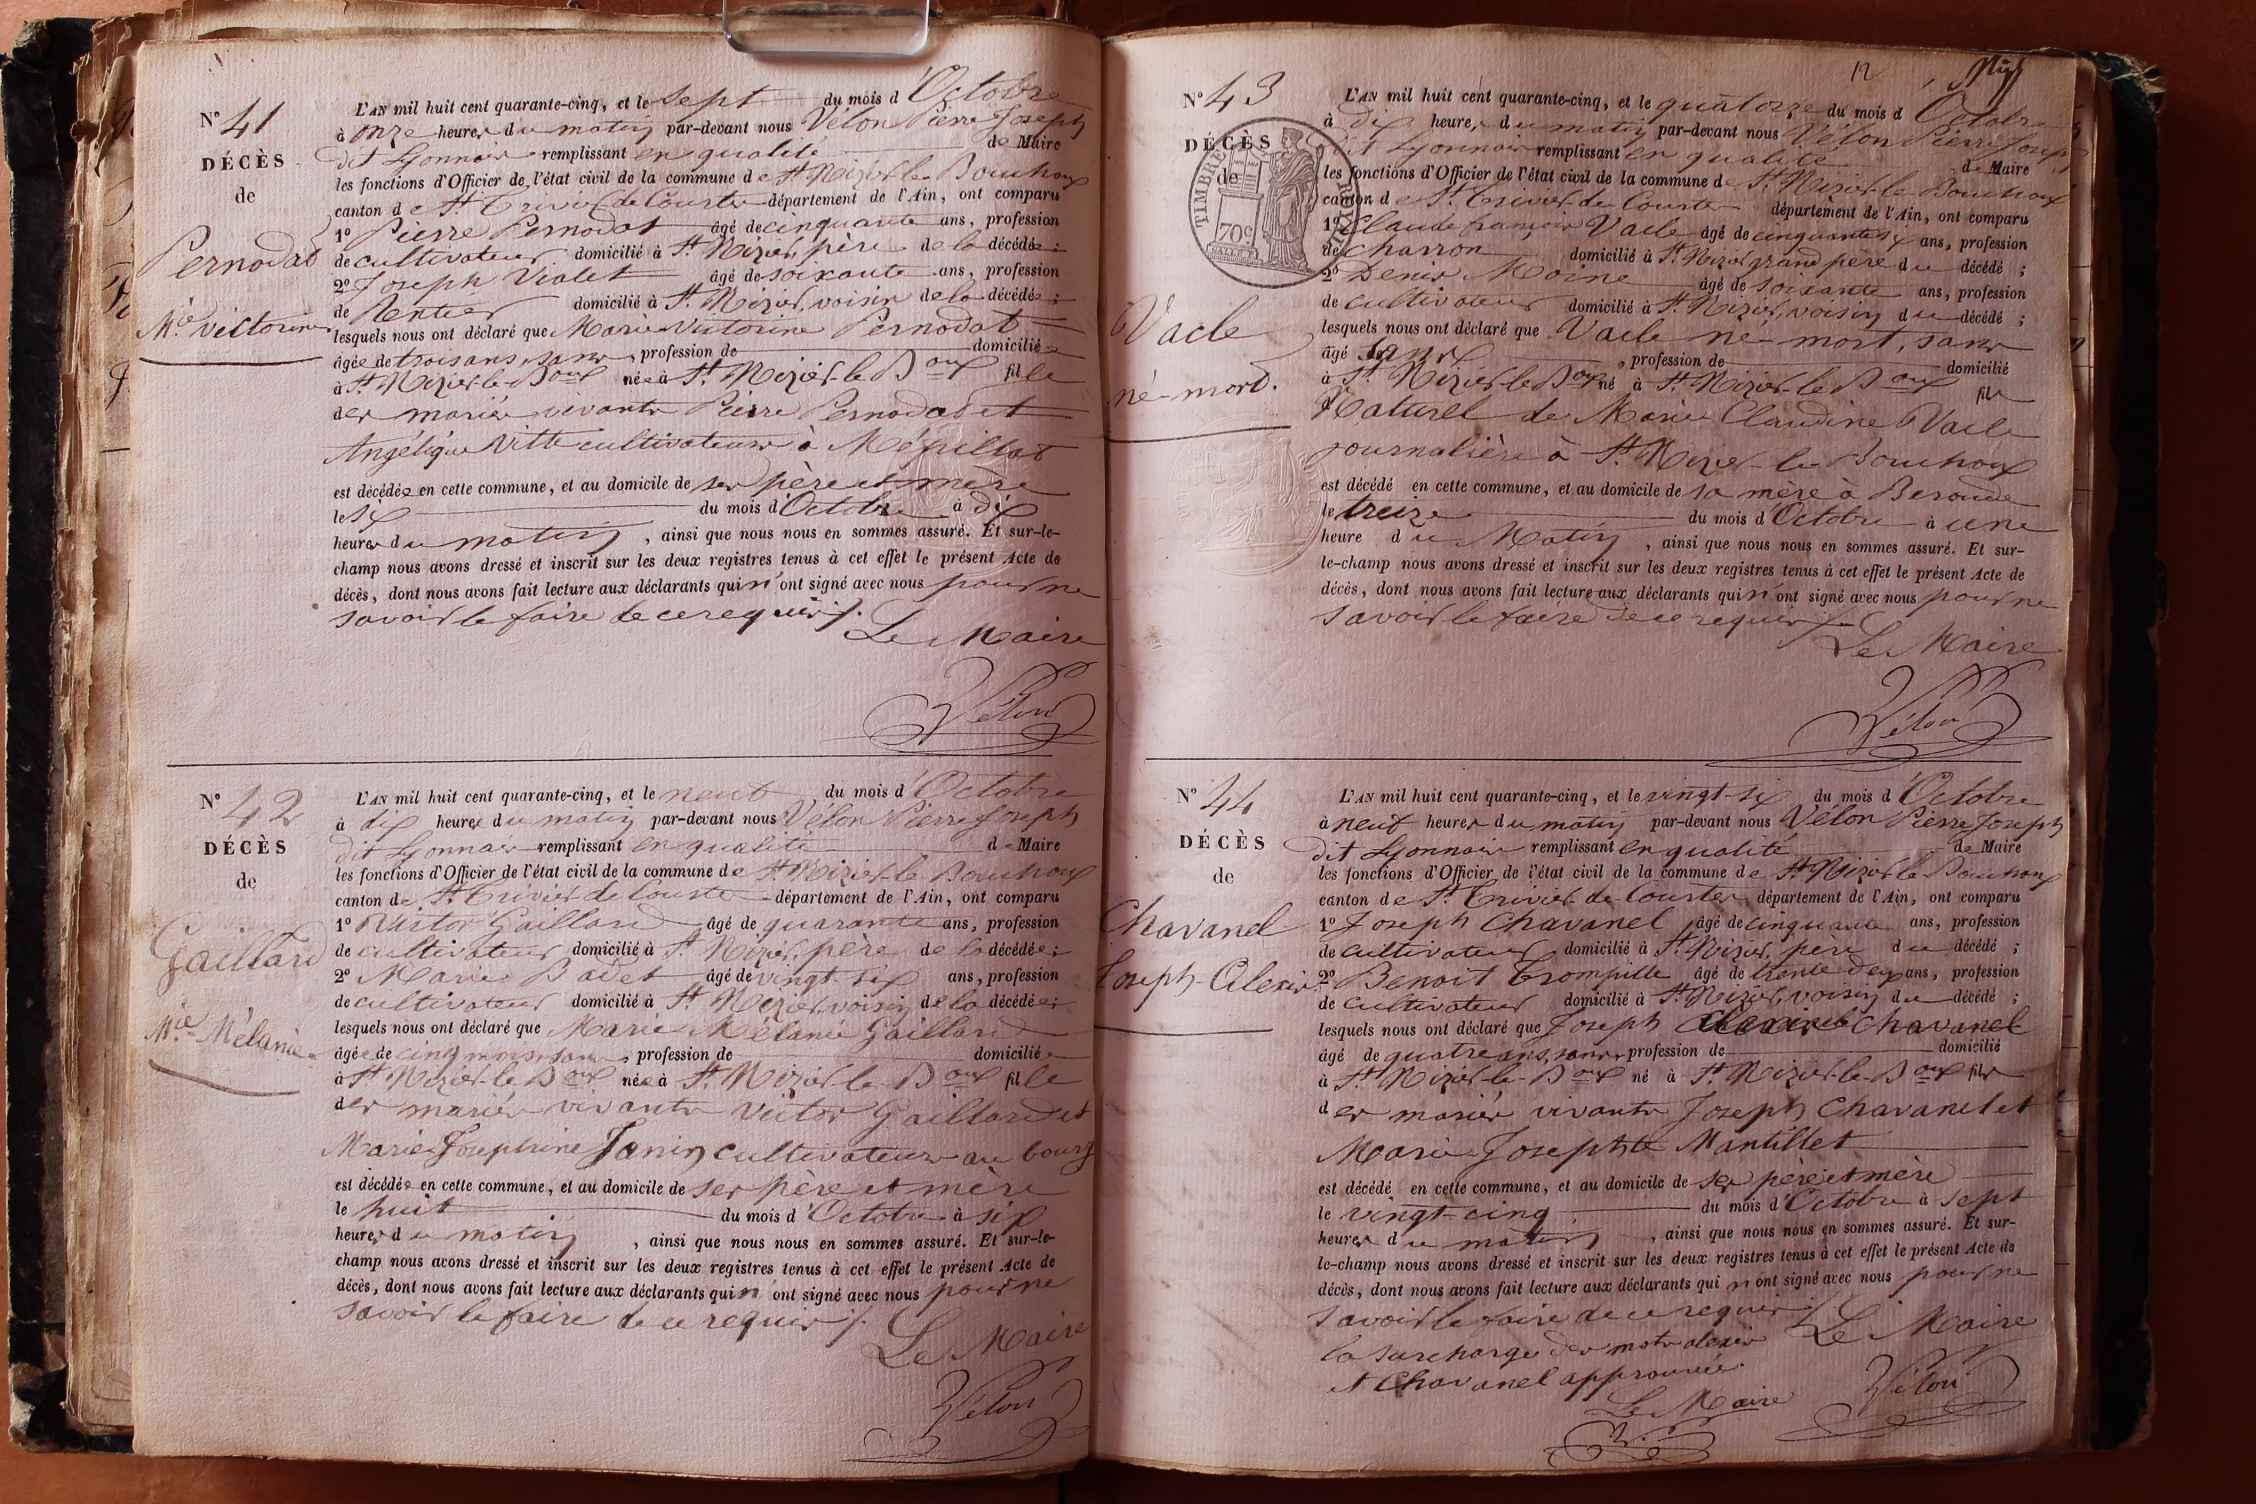 N° 41
DÉCÈS
de
Pernodat
Mie Victorine
L'AN mil huit cent quarante-cinq, et le sept du mois d'Octobre
à onze heures du matin par-devant nous Vélon Pierre Joseph
dit Lyonnais remplissant en qualité de Maire
les fonctions d'Officier de l'état civil de la commune de St Nizier-le-Bouchoux
canton de St Trivier de Courtes département de l'Ain, ont comparu
1° Pierre Pernodat âgé de cinquante ans, profession
de cultivateur domicilié à St Nizier, père de la décédée ;
2° Joseph Violet âgé de soixante ans, profession
de Rentier domicilié à St Nizier, voisin de la décédée ;
lesquels nous ont déclaré que Marie Victorine Pernodat
âgée de trois ans, sans, profession de domiciliée
à St Nizier-le-Boux née à St Nizier-le-Boux fille
des mariés vivants Pierre Pernodat et
Angélique Vitte cultivateurs à Mépillat
est décédée en cette commune, et au domicile de ses père et mère
le six du mois d'Octobre à dix
heures du matin, ainsi que nous nous en sommes assuré. Et sur-le-
champ nous avons dressé et inscrit sur les deux registres tenus à cet effet le présent Acte de
décès, dont nous avons fait lecture aux déclarants qui n'ont signé avec nous pour ne
savoir le faire de ce requis /.
Le Maire
Vélon
N° 42
DÉCÈS
de
Gaillard
Mie Mélanie
L'AN mil huit cent quarante-cinq, et le neuf du mois d'Octobre
à dix heures du matin par-devant nous Vélon Pierre Joseph
dit Lyonnais remplissant en qualité de Maire
les fonctions d'Officier de l'état civil de la commune de St Nizier-le-Bouchoux
canton de St Trivier de Courtes département de l'Ain, ont comparu
1° Victor Gaillard âgé de quarante ans, profession
de cultivateur domicilié à St Nizier, père de la décédée ;
2° Marie Badet âgé de vingt-six ans, profession
de cultivateur domicilié à St Nizier, voisin de la décédée ;
lesquels nous ont déclaré que Marie Mélanie Gaillard
âgée de cinq mois, sans, profession de domiciliée
à St Nizier-le-Boux née à St Nizier-le-Boux fille
des mariés vivants Victor Gaillard et
Marie Josephine Janin cultivateurs au bourg
est décédée en cette commune, et au domicile de ses père et mère
le huit du mois d'Octobre à six
heures du matin, ainsi que nous nous en sommes assuré. Et sur-le-
champ nous avons dressé et inscrit sur les deux registres tenus à cet effet le présent Acte de
décès, dont nous avons fait lecture aux déclarants qui n'ont signé avec nous pour ne
savoir le faire de ce requis /.
Le Maire
Vélon
12
N° 43
DÉCÈS
de
TIMBRE ROYAL
70c
Vacle
né-mort.
L'AN mil huit cent quarante-cinq, et le quatorze du mois d'Octobre
à dix heures du matin par-devant nous Vélon Pierre Joseph
dit Lyonnais remplissant en qualité de Maire
les fonctions d'Officier de l'état civil de la commune de St Nizier-le-Bouchoux
canton de St Trivier de Courtes département de l'Ain, ont comparu
1° Claude françois Vacle âgé de cinquante six ans, profession
de charron domicilié à St Nizier grand père du décédé ;
2° Denis Moine âgé de soixante ans, profession
de cultivateur domicilié à St Nizier, voisin du décédé ;
lesquels nous ont déclaré que Vacle né-mort, sans
âgé sans, profession de domicilié
à St Nizier-le-Boux né à St Nizier-le-Boux fils
Naturel de Marie Claudine Vacle
journalière à St Nizier-le-Bouchoux
est décédé en cette commune, et au domicile de sa mère à Beroude
le treize du mois d'Octobre à une
heure du Matin, ainsi que nous nous en sommes assuré. Et sur-
le-champ nous avons dressé et inscrit sur les deux registres tenus à cet effet le présent Acte de
décès, dont nous avons fait lecture aux déclarants qui n'ont signé avec nous pour ne
savoir le faire de ce requis /.
Le Maire
Vélon
N° 44
DÉCÈS
de
Chavanel
Joseph-Alexis
L'AN mil huit cent quarante-cinq, et le vingt-six du mois d'Octobre
à neuf heures du matin par-devant nous Vélon Pierre Joseph
dit Lyonnais remplissant en qualité de Maire
les fonctions d'Officier de l'état civil de la commune de St Nizier-le-Bouchoux
canton de St Trivier de Courtes département de l'Ain, ont comparu
1° Joseph Chavanel âgé de cinquante ans, profession
de cultivateur domicilié à St Nizier, père du décédé ;
2° Benoit Trompille âgé de trente deux ans, profession
de cultivateur domicilié à St Nizier, voisin du décédé ;
lesquels nous ont déclaré que Joseph Alexis Chavanel
âgé de quatre ans, sans profession de domicilié
à St Nizier-le-Boux né à St Nizier-le-Boux fils
des mariés vivants Joseph Chavanel et
Marie Josephte Mantillet
est décédé en cette commune, et au domicile de ses père et mère
le vingt-cinq du mois d'Octobre à sept
heures du matin, ainsi que nous nous en sommes assuré. Et sur-
le-champ nous avons dressé et inscrit sur les deux registres tenus à cet effet le présent Acte de
décès, dont nous avons fait lecture aux déclarants qui n'ont signé avec nous pour ne
savoir le faire de ce requis /.
Le Maire
la surcharge des mots alexis
et Chavanel approuvée
Vélon
Le Maire